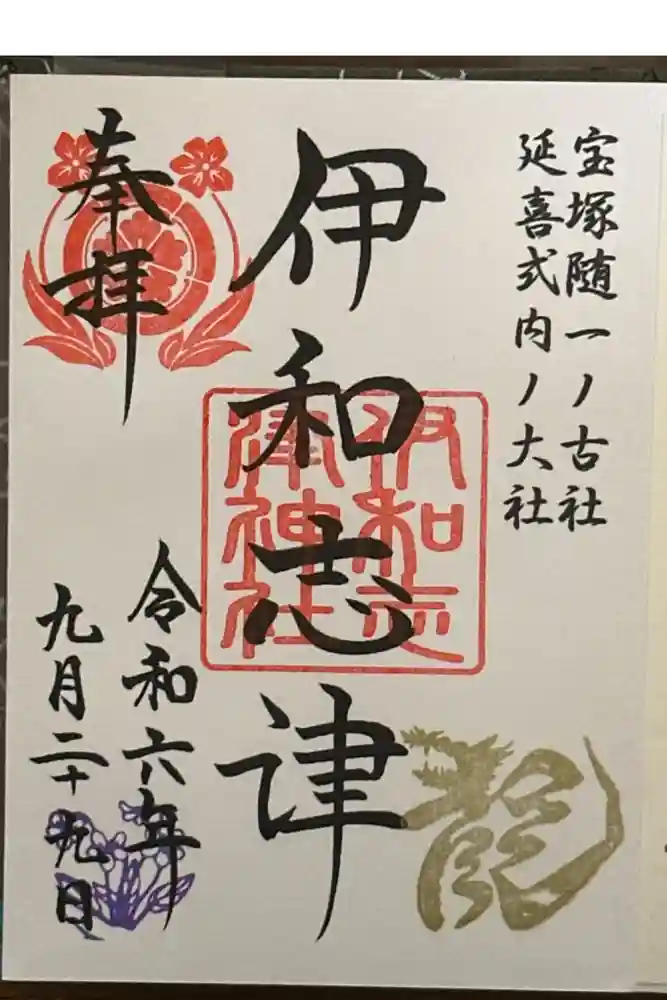 宝塚随一ノ古社
延喜式内ノ大社
伊和志津
伊和志
津神社
龍
奉拝
令和六年
九月二十九日